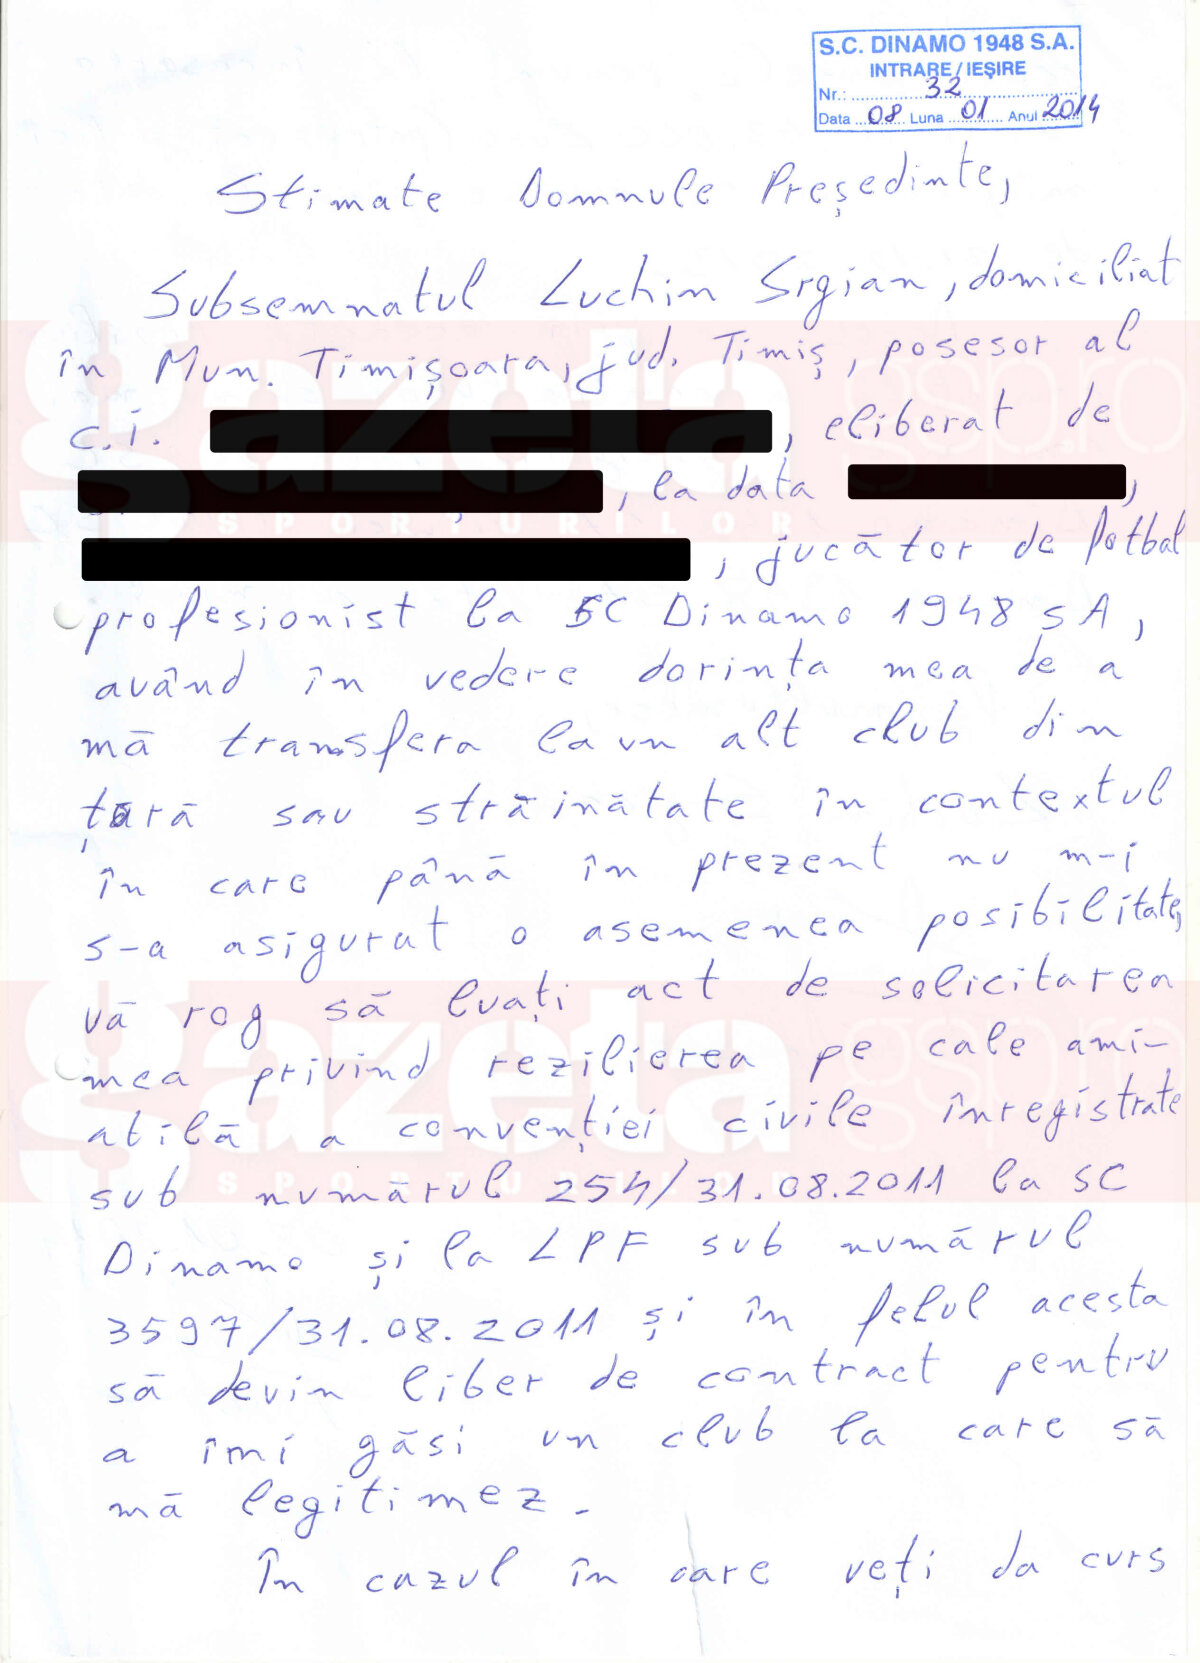 S.C. DINAMO 1948 S.A.
INTRARE / IEȘIRE
Nr.: 32
Data 08 Luna 01 Anul 2014
Stimate Domnule Președinte,
Subsemnatul Luchin Srgian, domiciliat
în Mun. Timișoara, jud. Timiș, posesor al
c.i. , eliberat de
, la data ,
, jucător de fotbal
profesionist la SC Dinamo 1948 SA,
având în vedere dorința mea de a
mă transfera la un alt club din
țară sau străinătate în contextul
în care până în prezent nu m-i
s-a asigurat o asemenea posibilitate,
vă rog să luați act de solicitarea
mea privind rezilierea pe cale ami-
abilă a convenției civile înregistrate
sub numărul 254/31.08.2011 la SC
Dinamo și la LPF sub numărul
3597/31.08.2011 și în felul acesta
să devin liber de contract pentru
a îmi găsi un club la care să
mă legitimez.
În cazul în care veți da curs
gazeta
SPORTURILOR
gsp.ro
gazeta
SPORTURILOR
gsp.ro